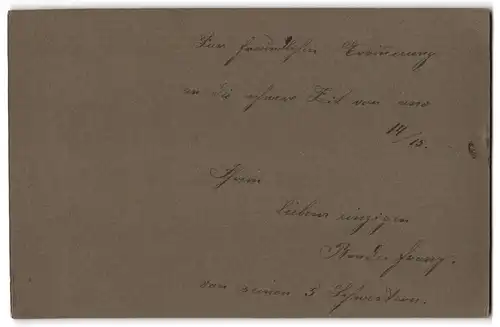 Zur freundlichen Erinnerung
an die schwere Zeit von uns
14/15.
Ihrem
lieben einzigen
Bruder Franz.
von seinen 5 Schwestern.